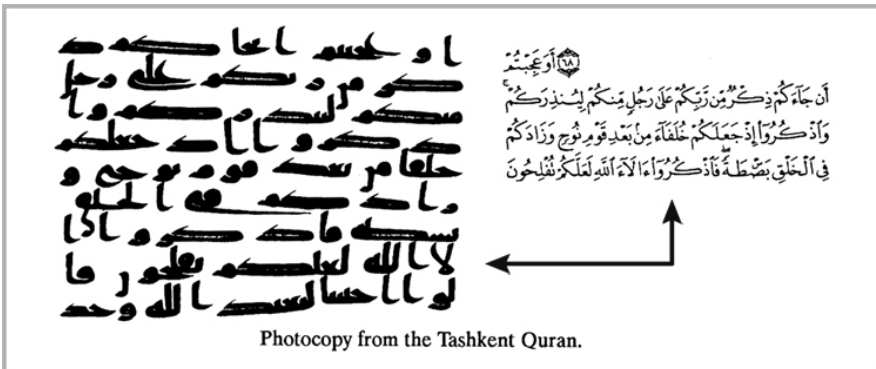 او عجبتم ان جاكم ذ
كر من ربكم على رجل
منكم لينذركم وا
ذكروا اذ جعلكم
خلفا من بعد قوم نوح و
زادكم في الخلق
بسطه فاذكروا ا
لا الله لعلكم تفلحون قا
لوا اجئتنا لنعبد الله وحد
٦٨ أَوَعَجِبْتُمْ
أَن جَآءَكُمْ ذِكْرٌ مِّن رَّبِّكُمْ عَلَىٰ رَجُلٍ مِّنكُمْ لِيُنذِرَكُمْ ۚ
وَٱذْكُرُوٓا۟ إِذْ جَعَلَكُمْ خُلَفَآءَ مِنۢ بَعْدِ قَوْمِ نُوحٍ وَزَادَكُمْ
فِى ٱلْخَلْقِ بَصْۜطَةً ۖ فَٱذْكُرُوٓا۟ ءَالَآءَ ٱللَّهِ لَعَلَّكُمْ تُفْلِحُونَ
Photocopy from the Tashkent Quran.